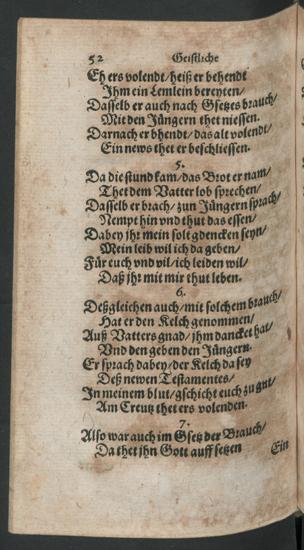 52 Geistliche
Eh ers volendt/ heiß er behendt
Jhm ein Lemlein bereyten/
Dasselb er auch nach Gsetzes brauch/
Mit den Jüngern thet niessen.
Darnach er bhendt/ das alt volendt/
Ein news thet er beschliessen.
5.
Da die stund kam/ das Brot er nam/
Thet dem Vatter lob sprechen/
Dasselb er brach/ zun Jüngern sprach/
Nempt hin vnd thut das essen/
Dabey jhr mein solt gdencken seyn/
Mein leib wil ich da geben/
Für euch vnd vil/ ich leiden wil/
Daß jhr mit mir thut leben.
6.
Deßgleichen auch/ mit solchem brauch/
Hat er den Kelch genommen/
Auß Vatters gnad/ jhm dancket hat/
Vnd den geben den Jüngern.
Er sprach dabey/ der Kelch da sey
Deß newen Testamentes/
In meinem blut/ gschicht euch zu gut/
Am Creutz thet ers volenden.
7.
Also war auch im Gsetz der Brauch/
Da thet jhn Gott auff setzen
Ein